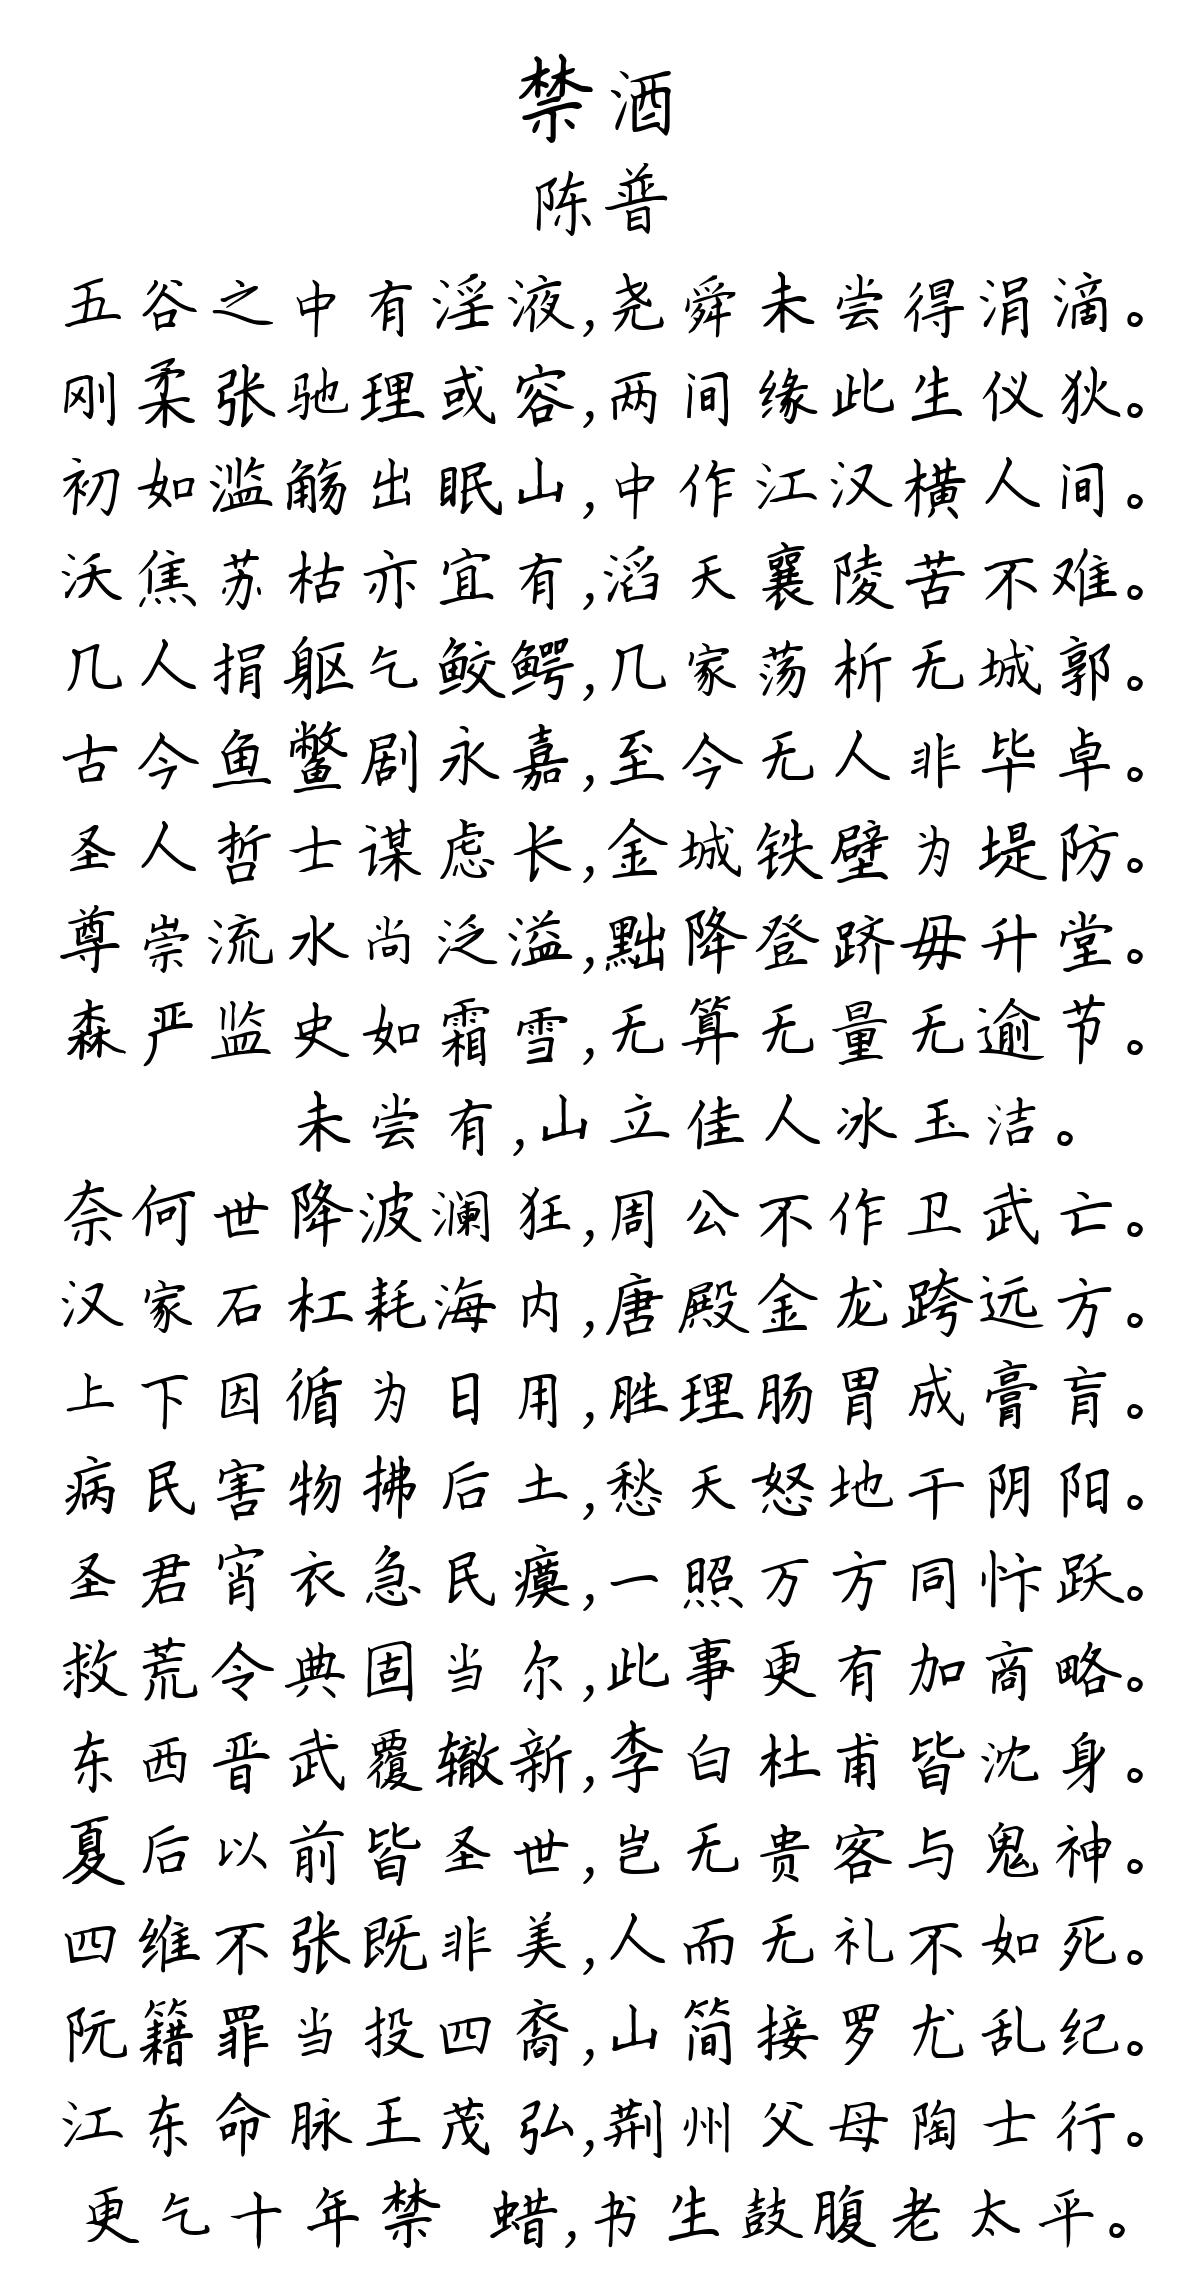 禁酒
陈普
五谷之中有淫液,尧舜未尝得涓滴。
刚柔张驰理或容,两间缘此生仪狄。
初如滥觞出眠山,中作江汉横人间。
沃焦苏枯亦宜有,滔天襄陵苦不难。
几人捐躯乞鲛鳄,几家荡析无城郭。
古今鱼鳖剧永嘉,至今无人非毕卓。
圣人哲士谋虑长,金城铁壁为堤防。
尊崇流水尚泛溢,黜降登跻毋升堂。
森严监史如霜雪,无算无量无逾节。
未尝有,山立佳人冰玉洁。
奈何世降波澜狂,周公不作卫武亡。
汉家石杠耗海内,唐殿金龙跨远方。
上下因循为日用,胜理肠胃成膏肓。
病民害物拂后土,愁天怒地干阴阳。
圣君宵衣急民瘼,一照万方同忭跃。
救荒令典固当尔,此事更有加商略。
东西晋武覆辙新,李白杜甫皆沈身。
夏后以前皆圣世,岂无贵客与鬼神。
四维不张既非美,人而无礼不如死。
阮籍罪当投四裔,山简接罗尤乱纪。
江东命脉王茂弘,荆州父母陶士行。
更乞十年禁 蜡,书生鼓腹老太平。